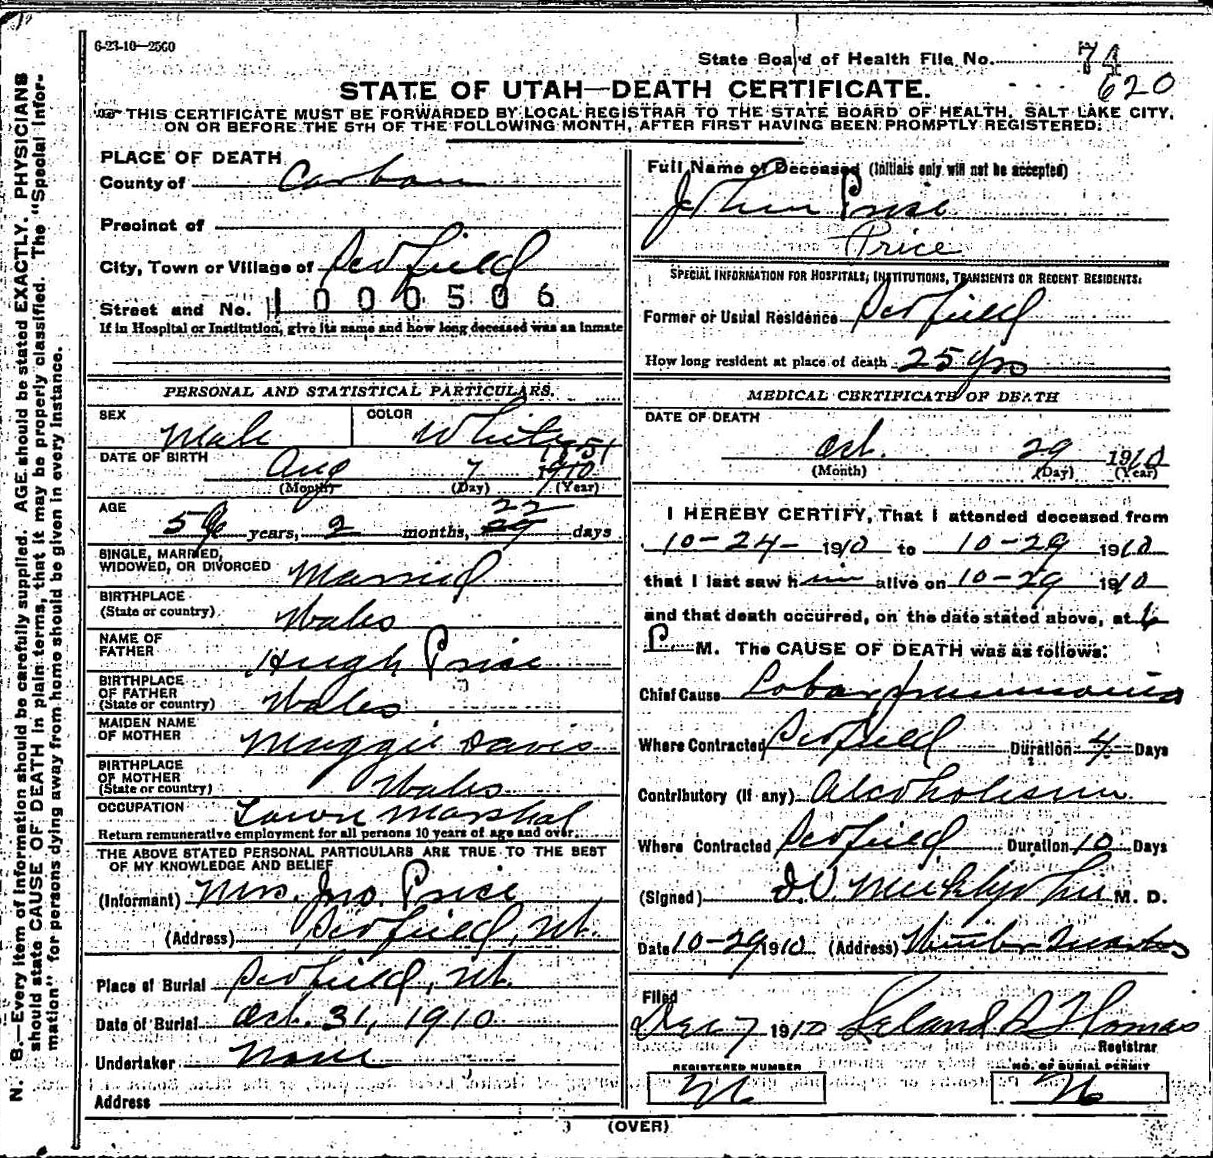 6-23-10—2500
State Board of Health File No. 74
620
STATE OF UTAH—DEATH CERTIFICATE.
THIS CERTIFICATE MUST BE FORWARDED BY LOCAL REGISTRAR TO THE STATE BOARD OF HEALTH, SALT LAKE CITY,
ON OR BEFORE THE 5TH OF THE FOLLOWING MONTH, AFTER FIRST HAVING BEEN PROMPTLY REGISTERED.
N. B.—Every item of information should be carefully supplied. AGE should be stated EXACTLY. PHYSICIANS
should state CAUSE OF DEATH in plain terms, that it may be properly classified. The "Special Infor-
mation" for persons dying away from home should be given in every instance.
PLACE OF DEATH
County of Carbon
Precinct of
City, Town or Village of Scofield
Street and No. 1000506
If in Hospital or Institution, give its name and how long deceased was an inmate
PERSONAL AND STATISTICAL PARTICULARS.
SEX Male COLOR White
DATE OF BIRTH Aug 7 1851 1910
(Month) (Day) (Year)
AGE 59 years, 2 months, 22 days
SINGLE, MARRIED,
WIDOWED, OR DIVORCED Married
BIRTHPLACE
(State or country) Wales
NAME OF
FATHER Hugh Price
BIRTHPLACE
OF FATHER
(State or country) Wales
MAIDEN NAME
OF MOTHER Maggie Davis
BIRTHPLACE
OF MOTHER
(State or country) Wales
OCCUPATION Town Marshal
Return remunerative employment for all persons 10 years of age and over.
THE ABOVE STATED PERSONAL PARTICULARS ARE TRUE TO THE BEST
OF MY KNOWLEDGE AND BELIEF
(Informant) Mrs. Jno. Price
(Address) Scofield, Ut.
Place of Burial Scofield, Ut.
Date of Burial Oct. 31, 1910
Undertaker None
Address
Full Name of Deceased (Initials only will not be accepted)
John Price
Price
SPECIAL INFORMATION FOR HOSPITALS, INSTITUTIONS, TRANSIENTS OR RECENT RESIDENTS:
Former or Usual Residence Scofield
How long resident at place of death 25 yrs
MEDICAL CERTIFICATE OF DEATH
DATE OF DEATH
Oct. 29 1910
(Month) (Day) (Year)
I HEREBY CERTIFY, That I attended deceased from
10-24- 1910 to 10-29 1910
that I last saw him alive on 10-29 1910
and that death occurred, on the date stated above, at 6
P. M. The CAUSE OF DEATH was as follows:
Chief Cause Lobar pneumonia
Where Contracted Scofield Duration 4 Days
Contributory (if any) Alcoholism
Where Contracted Scofield Duration 10 Days
(Signed) M. D.
Date 10-29 1910 (Address) Winter Quarters
Filed
Dec 7 1910 Leland S Thomas
Registrar
REGISTERED NUMBER
NO. OF BURIAL PERMIT
(OVER)